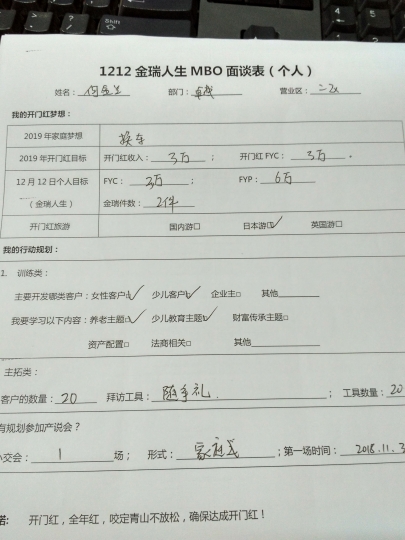 1212金瑞人生MBO面谈表（个人）
姓名： 部门： 营业区：二区
我的开门红梦想：
2019年家庭梦想 换车
2019年开门红目标 开门红收入：3万； 开门红FYC：3万。
12月12日个人目标（金瑞人生） FYC：3万； FYP：6万
金瑞件数：2件
开门红旅游 国内游□ 日本游☑ 英国游□
我的行动规划：
1. 训练类：
主要开发哪类客户：女性客户☑ 少儿客户☑ 企业主□ 其他
我要学习以下内容：养老主题☑ 少儿教育主题☑ 财富传承主题□
资产配置□ 法商相关□ 其他
主拓类：
客户的数量：20 拜访工具：随手礼； 工具数量：20
有规划参加产说会？
小交会：1场； 形式：家庭式；第一场时间：2018.11.3
诺： 开门红，全年红，咬定青山不放松，确保达成开门红！